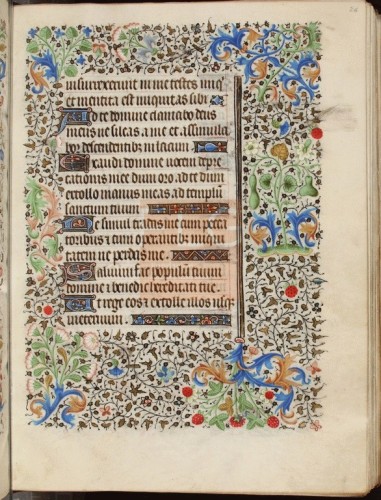 insurrexerunt in me testes iniq
et mentita est iniquitas sibi
Ad te domine clamabo deus
meus ne sileas a me et assimilez
bor descendentibz in lacum
Exaudi domine vocem depre
cationis mee dum oro ad te dum
extollo manus meas ad templū
sanctum tuum
Ne simul tradas me cum pecca
toribus et cum operantibz iniqui
tatem ne perdas me
Saluum fac populū tuum
domine et benedic hereditati tue
Et rege eos et extolle illos usq
ineternum